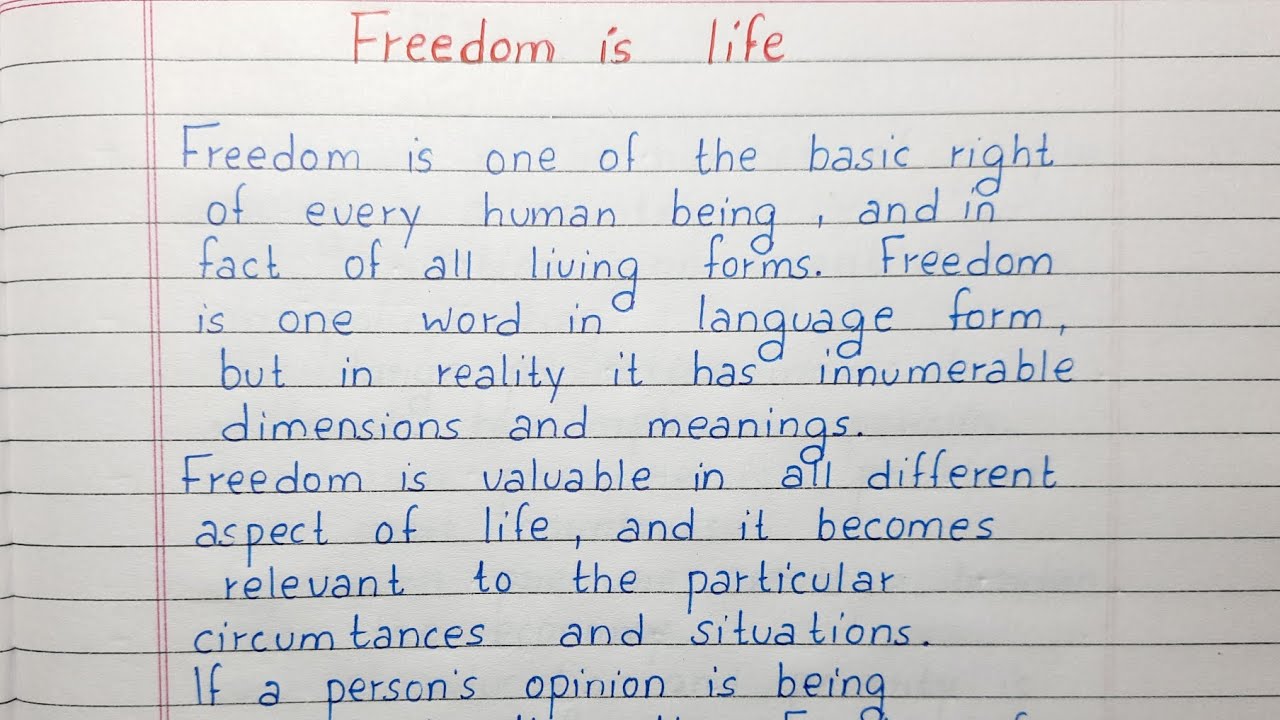 Freedom is life
Freedom is one of the basic right
of every human being, and in
fact of all living forms. Freedom
is one word in language form,
but in reality it has innumerable
dimensions and meanings.
Freedom is valuable in all different
aspect of life, and it becomes
relevant to the particular
circumtances and situations.
If a person's opinion is being